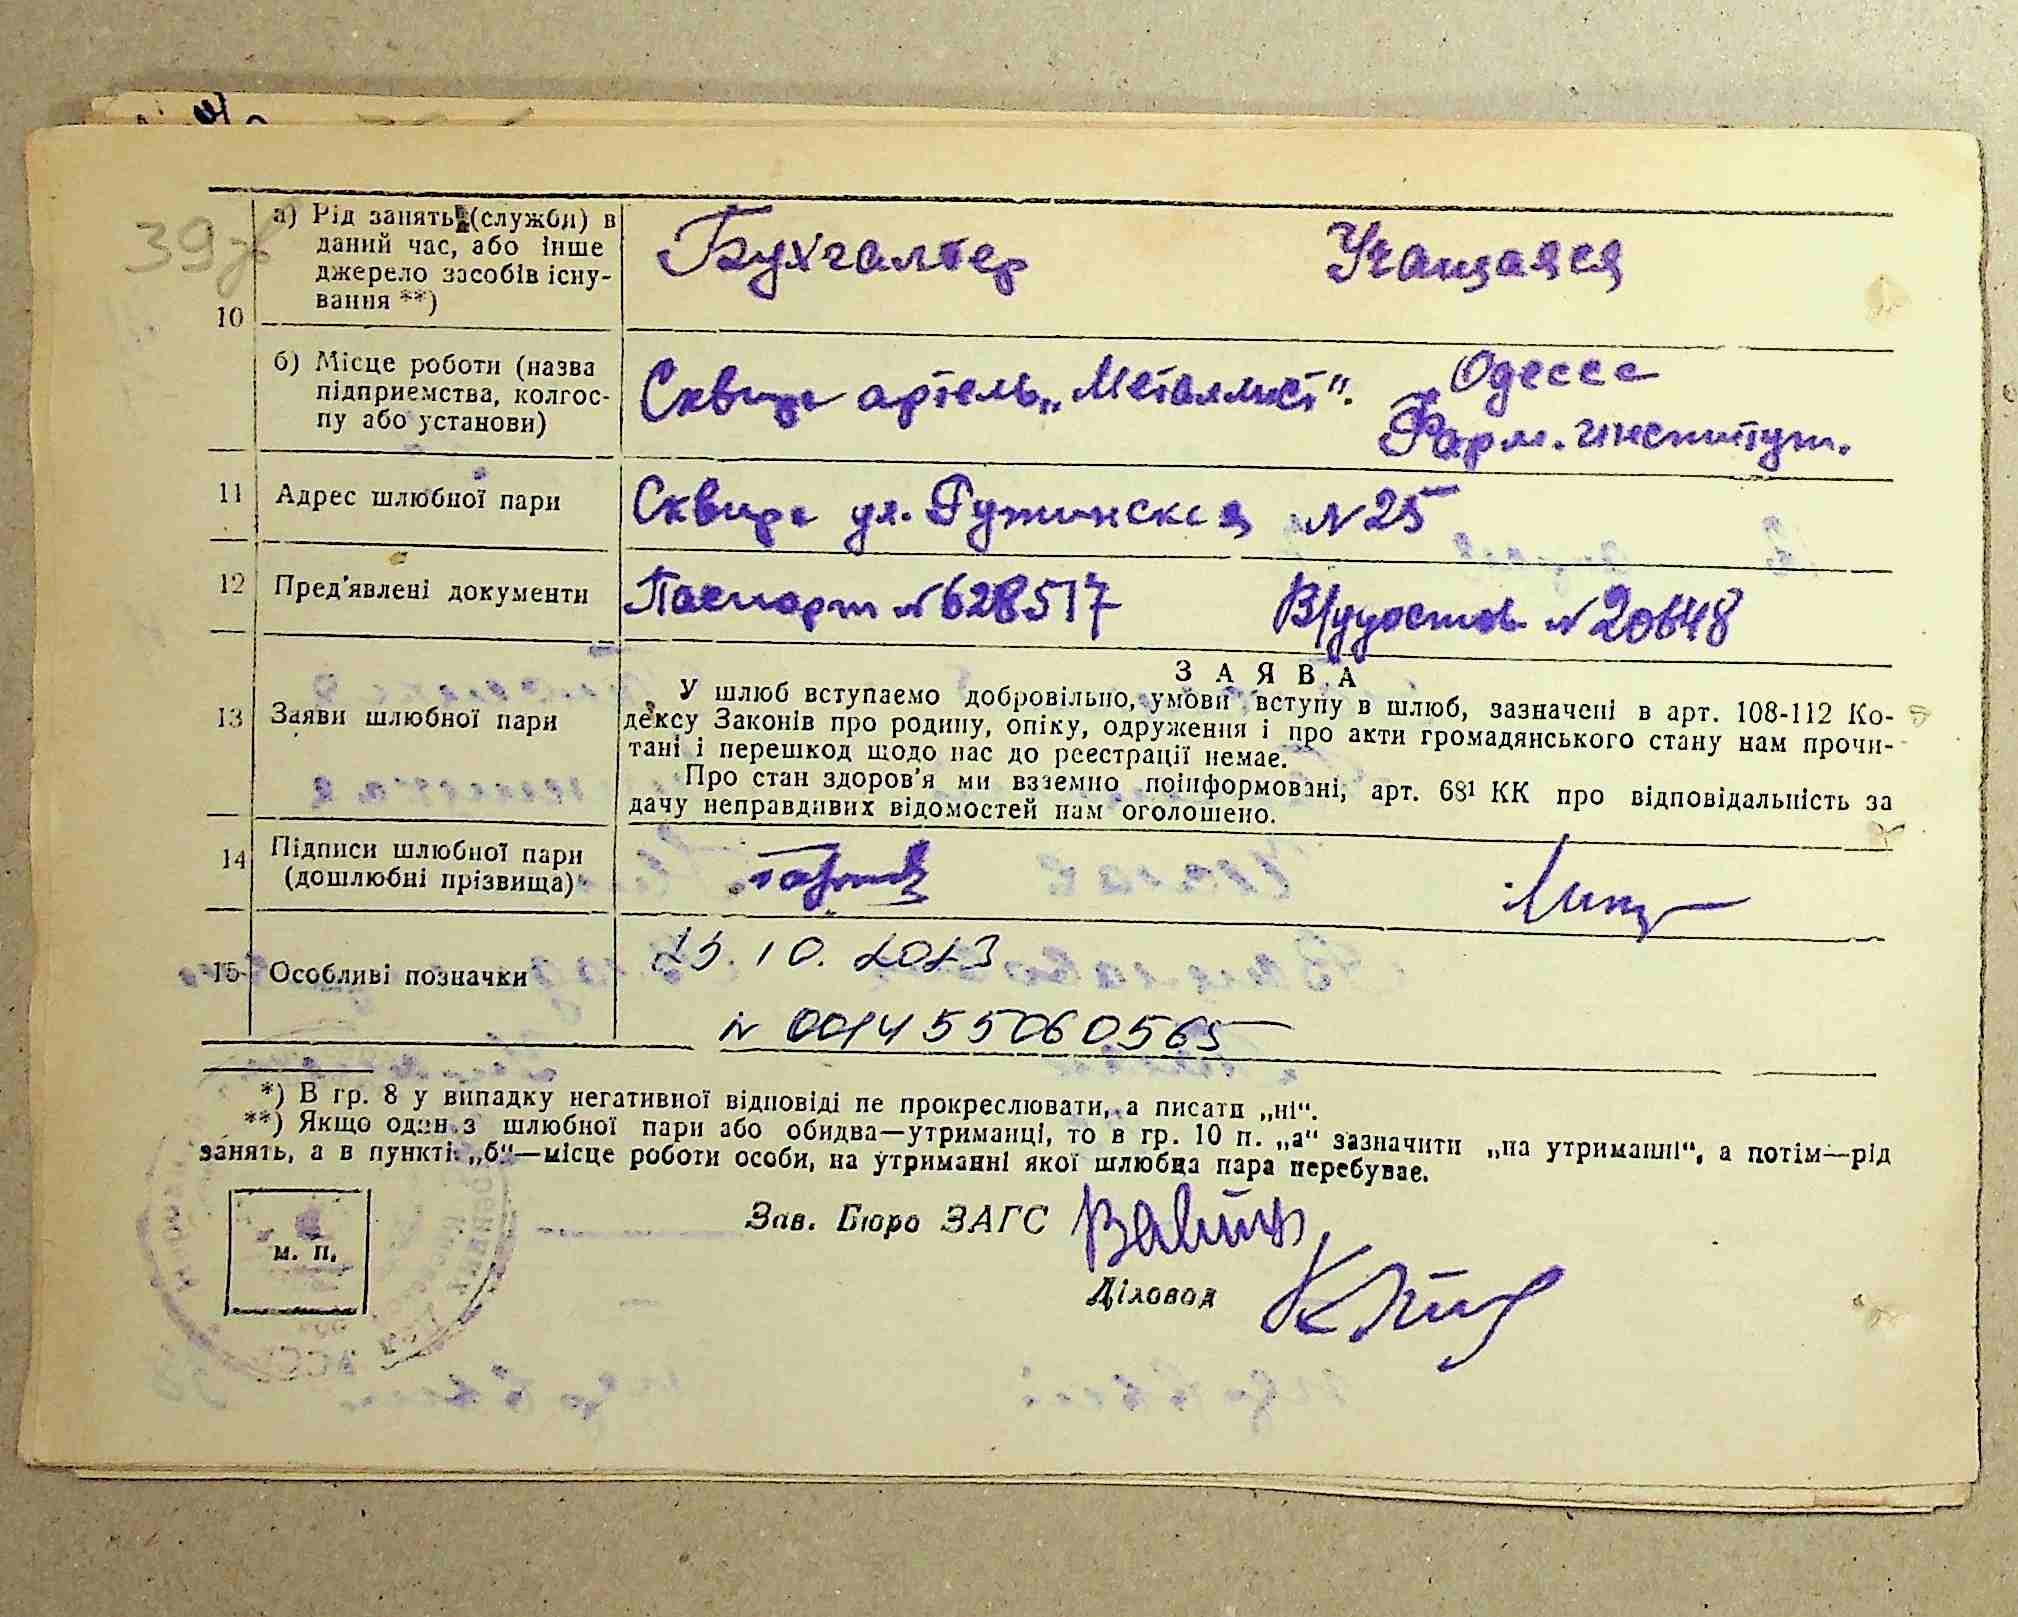 39
а) Рід занять (служби) в
даний час, або інше
джерело засобів існу-
вання **)
10
Бухгалтер
Учащаяся
б) Місце роботи (назва
підприємства, колгос-
пу або установи)
Сквира артель „Металлист".
Одесса
Фарм. институт.
11 Адрес шлюбної пари
Сквира ул. Ружинская № 25
12 Пред'явлені документи
Паспорт № 628517
В/удостов № 20648
13 Заяви шлюбної пари
ЗАЯВА
У шлюб вступаємо добровільно, умови вступу в шлюб, зазначені в арт. 108-112 Ко-
дексу Законів про родину, опіку, одруження і про акти громадянського стану нам прочи-
тані і перешкод щодо нас до реєстрації немає.
Про стан здоров'я ми взаємно поінформовані, арт. 68¹ КК про відповідальність за
дачу неправдивих відомостей нам оголошено.
14 Підписи шлюбної пари
(дошлюбні прізвища)
15 Особливі позначки
25.10.2023
N 001455060565
*) В гр. 8 у випадку негативної відповіді не прокреслювати, а писати „ні".
**) Якщо один з шлюбної пари або обидва—утриманці, то в гр. 10 п. „а" зазначити „на утриманні", а потім—рід
занять, а в пункті „б"—місце роботи особи, на утриманні якої шлюбна пара перебуває.
Зав. Бюро ЗАГС
м. п.
Діловод